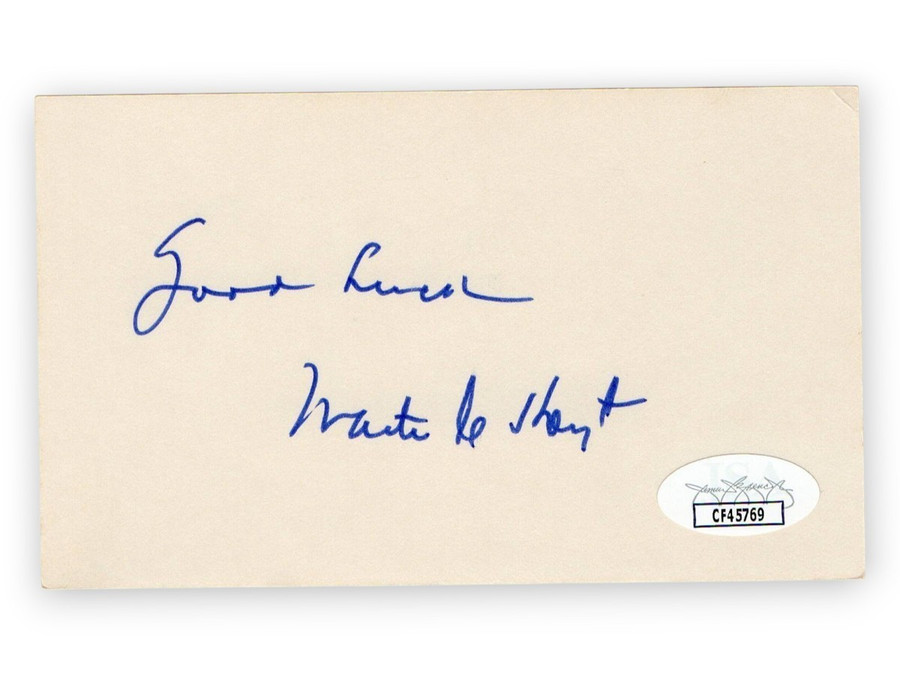 Good Luck
Waite Hoyt
JSA
CF45769